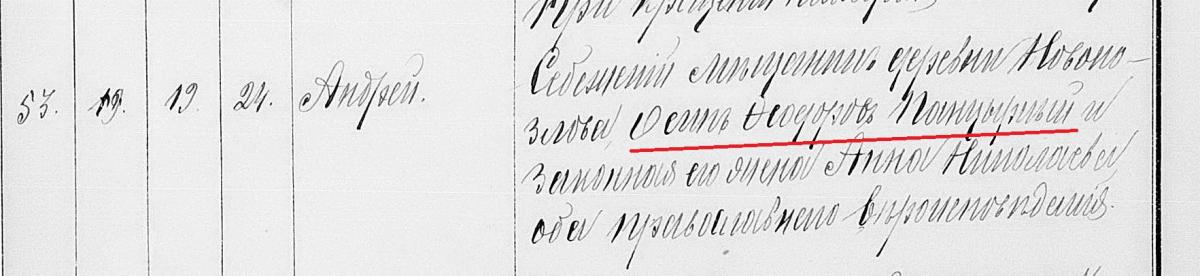 при крещении
53. 19. 19 24. Андрей. Себежскій мѣщанинъ деревни Новоко-
злова, Осипъ Ѳеодоровъ Панцырный и
законная его жена Анна Николаева,
оба православнаго вѣроисповѣданія.